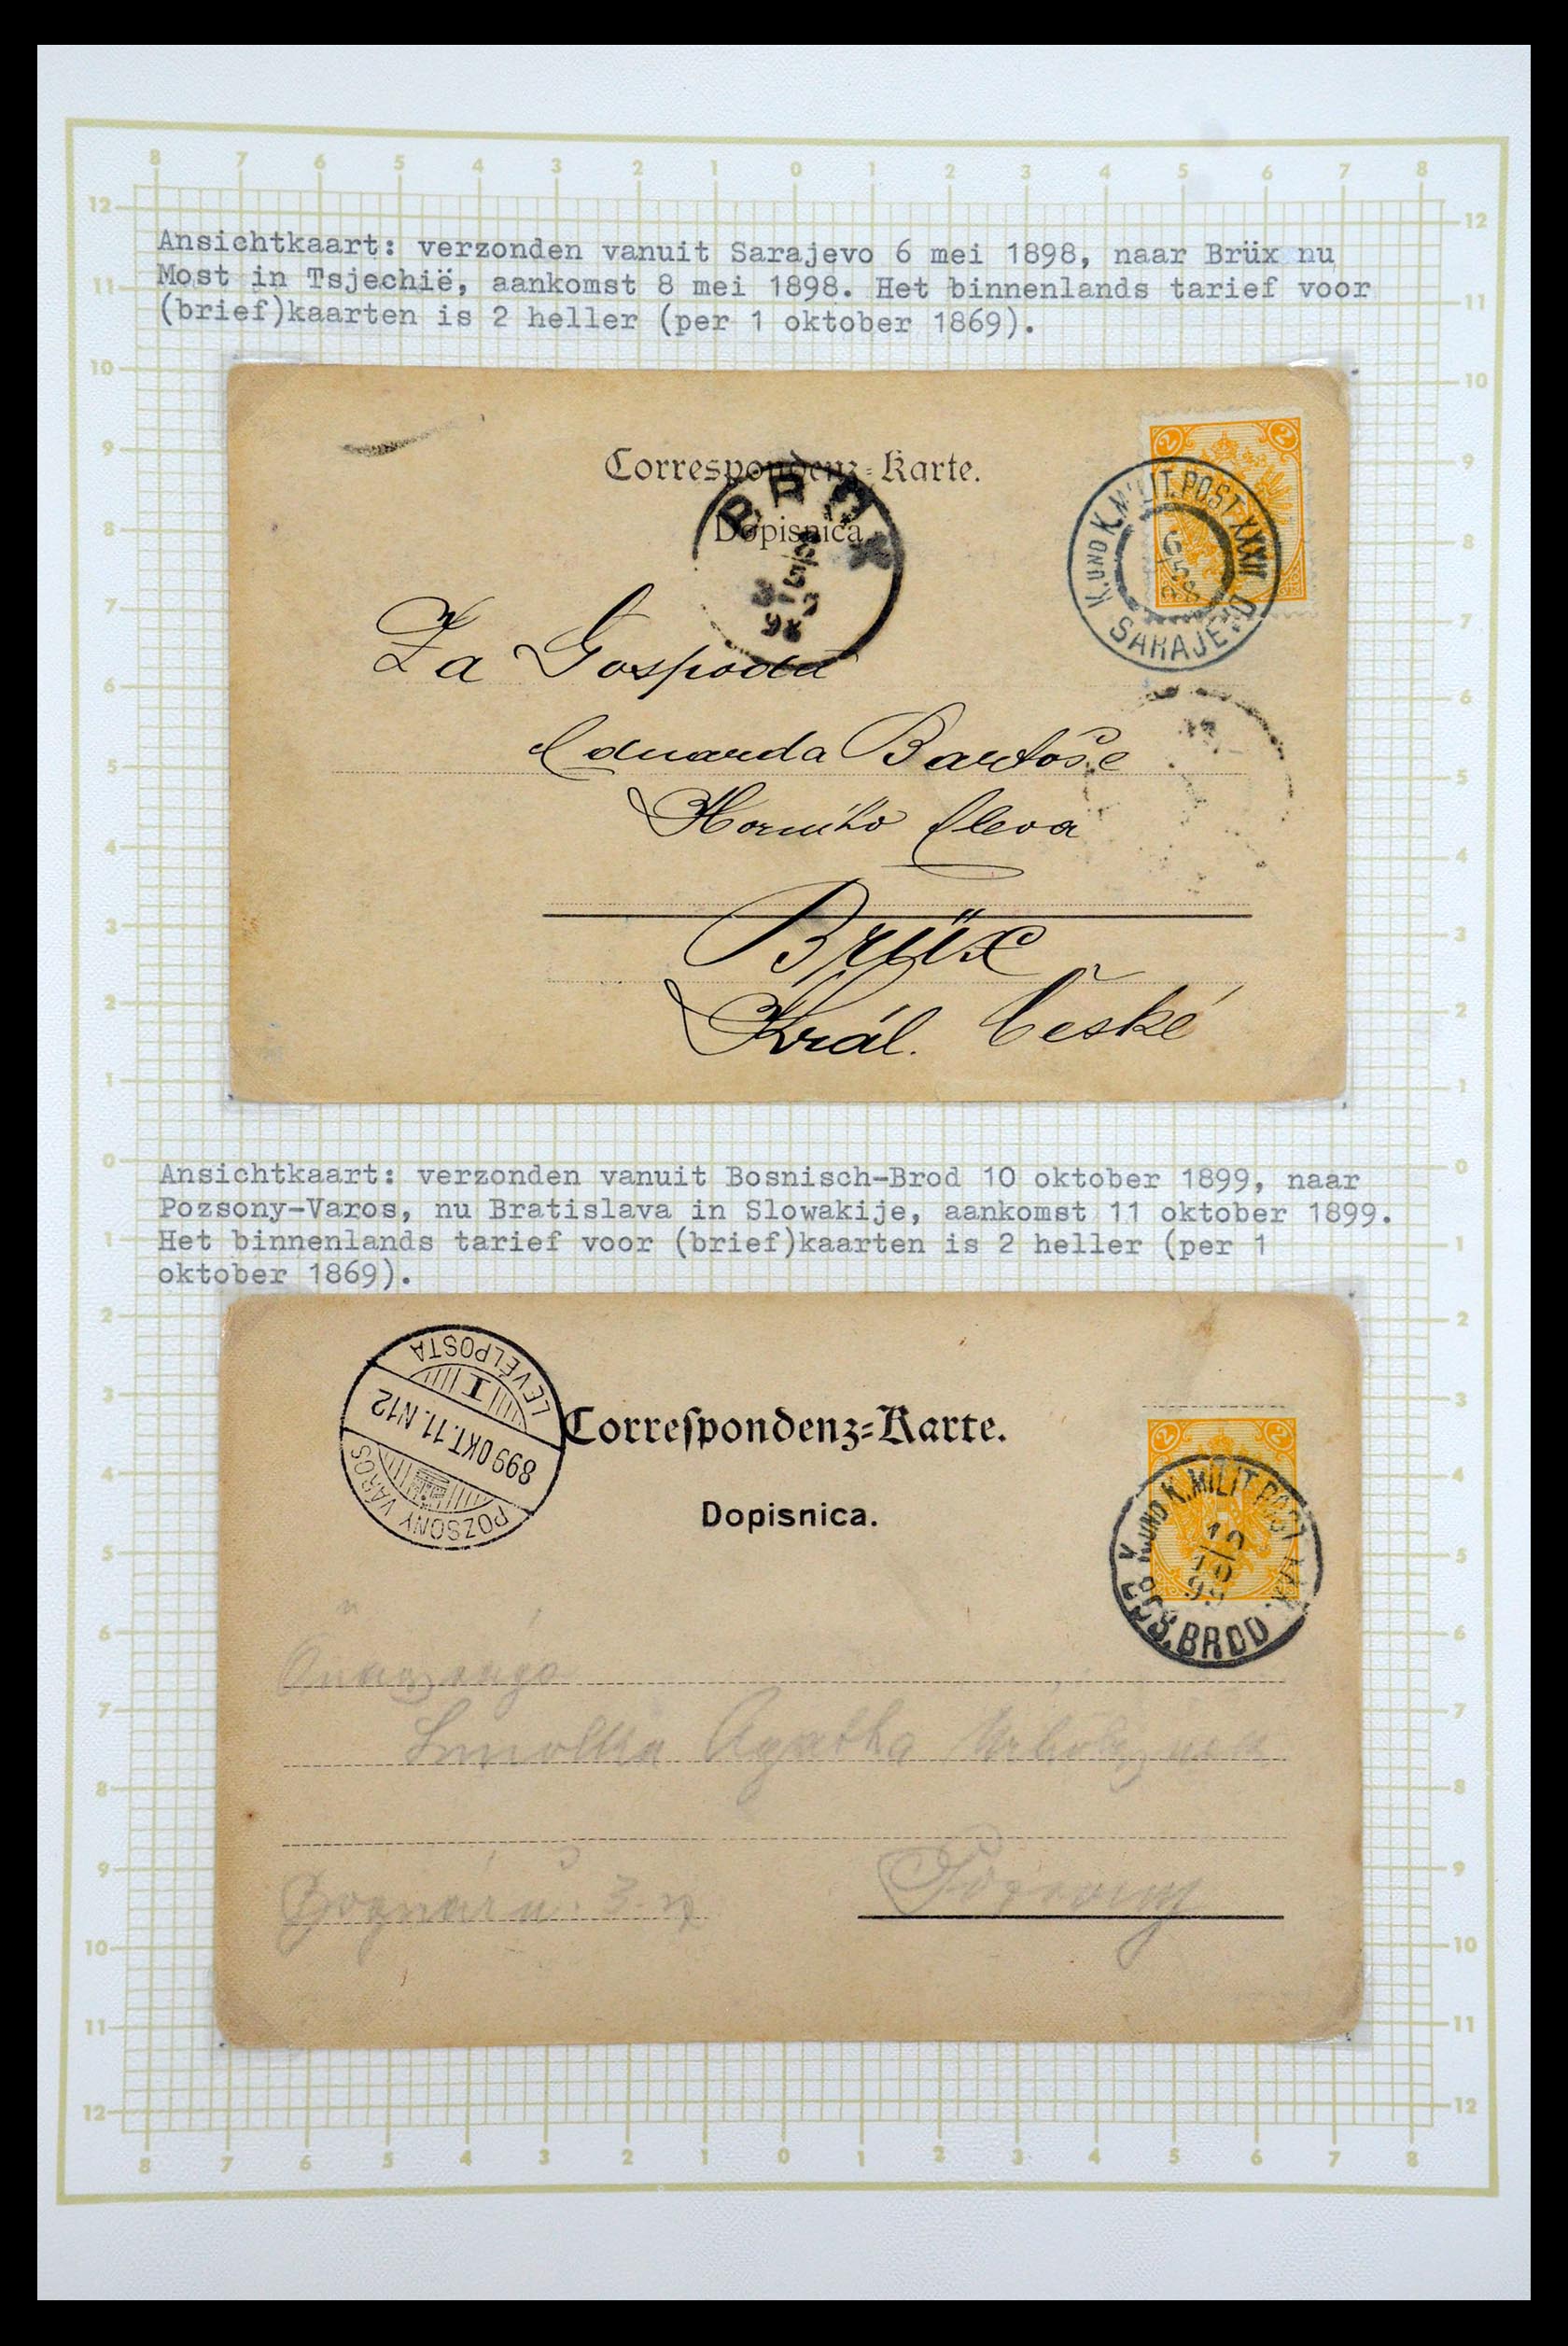 8 7 6 5 4 3 2 1 0 1 2 3 4 5 6 7 8
Ansichtkaart: verzonden vanuit Sarajevo 6 mei 1898, naar Brüx nu
Most in Tsjechië, aankomst 8 mei 1898. Het binnenlands tarief voor
(brief)kaarten is 2 heller (per 1 oktober 1869).
Correspondenz-Karte.
Dopisnica
2 2
K. UND K. MILIT. POST XXXII
6/5 98
SARAJEVO
Za Gospodu
Eduarda Bartoše
Horního
Brüx
Král. České
Ansichtkaart: verzonden vanuit Bosnisch-Brod 10 oktober 1899, naar
Pozsony-Varos, nu Bratislava in Slowakije, aankomst 11 oktober 1899.
Het binnenlands tarief voor (brief)kaarten is 2 heller (per 1
oktober 1869).
POZSONY VÁROS
899 OKT. 11. N12
I
LEVÉLPOSTA
Correſpondenz-Karte.
Dopisnica.
2 2
K. UND K. MILIT. POST
10/10 99
BOS. BROD
Agatha
8 7 6 5 4 3 2 1 0 1 2 3 4 5 6 7 8
12 11 10 9 8 7 6 5 4 3 2 1 0 1 2 3 4 5 6 7 8 9 10 11 12
12 11 10 9 8 7 6 5 4 3 2 1 0 1 2 3 4 5 6 7 8 9 10 11 12